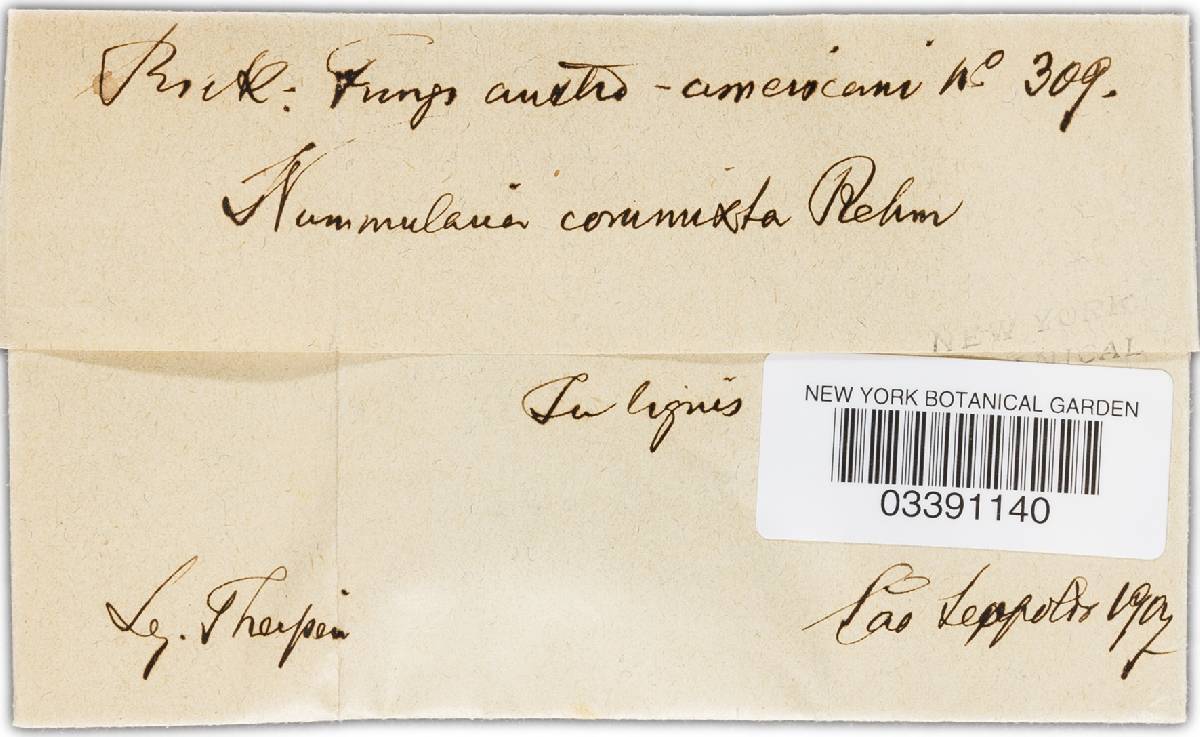 Rick: Fungi austro-americani No 309.
Nummularia commixta Rehm
NEW YORK
In lignis
NEW YORK BOTANICAL GARDEN
03391140
Leg. Theissen
São Leopoldo 1907